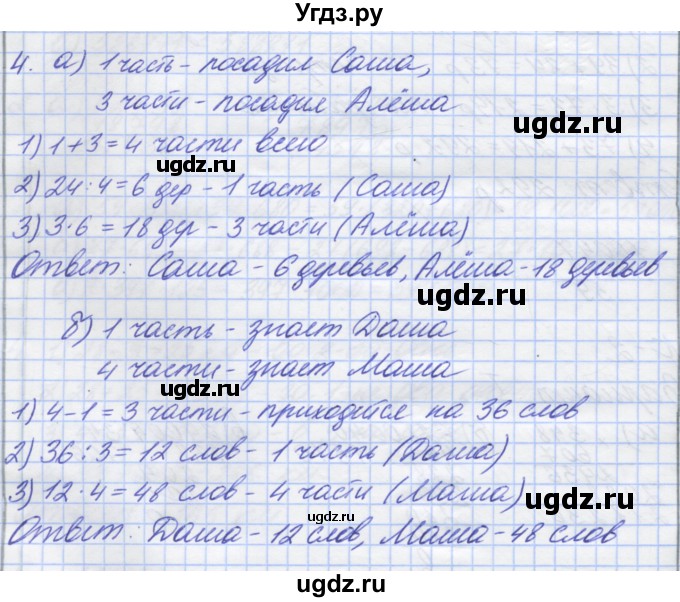 Угдз.ру
4. а) 1 часть - посадил Саша,
3 части - посадил Алёша
ugdz.ru
1) 1+3=4 части всего
ugdz.ru
2) 24:4=6 дер - 1 часть (Саша)
3) 3·6=18 дер - 3 части (Алёша)
Ответ: Саша - 6 деревьев, Алёша - 18 деревьев
ugdz.ru
б) 1 часть - знает Даша
4 части - знает Маша
ugdz.ru
1) 4-1=3 части - приходится на 36 слов
2) 36:3=12 слов - 1 часть (Даша)
3) 12·4=48 слов - 4 части (Маша)
ugdz.ru
ugdz.ru
Ответ: Даша - 12 слов, Маша - 48 слов
ugdz.ru